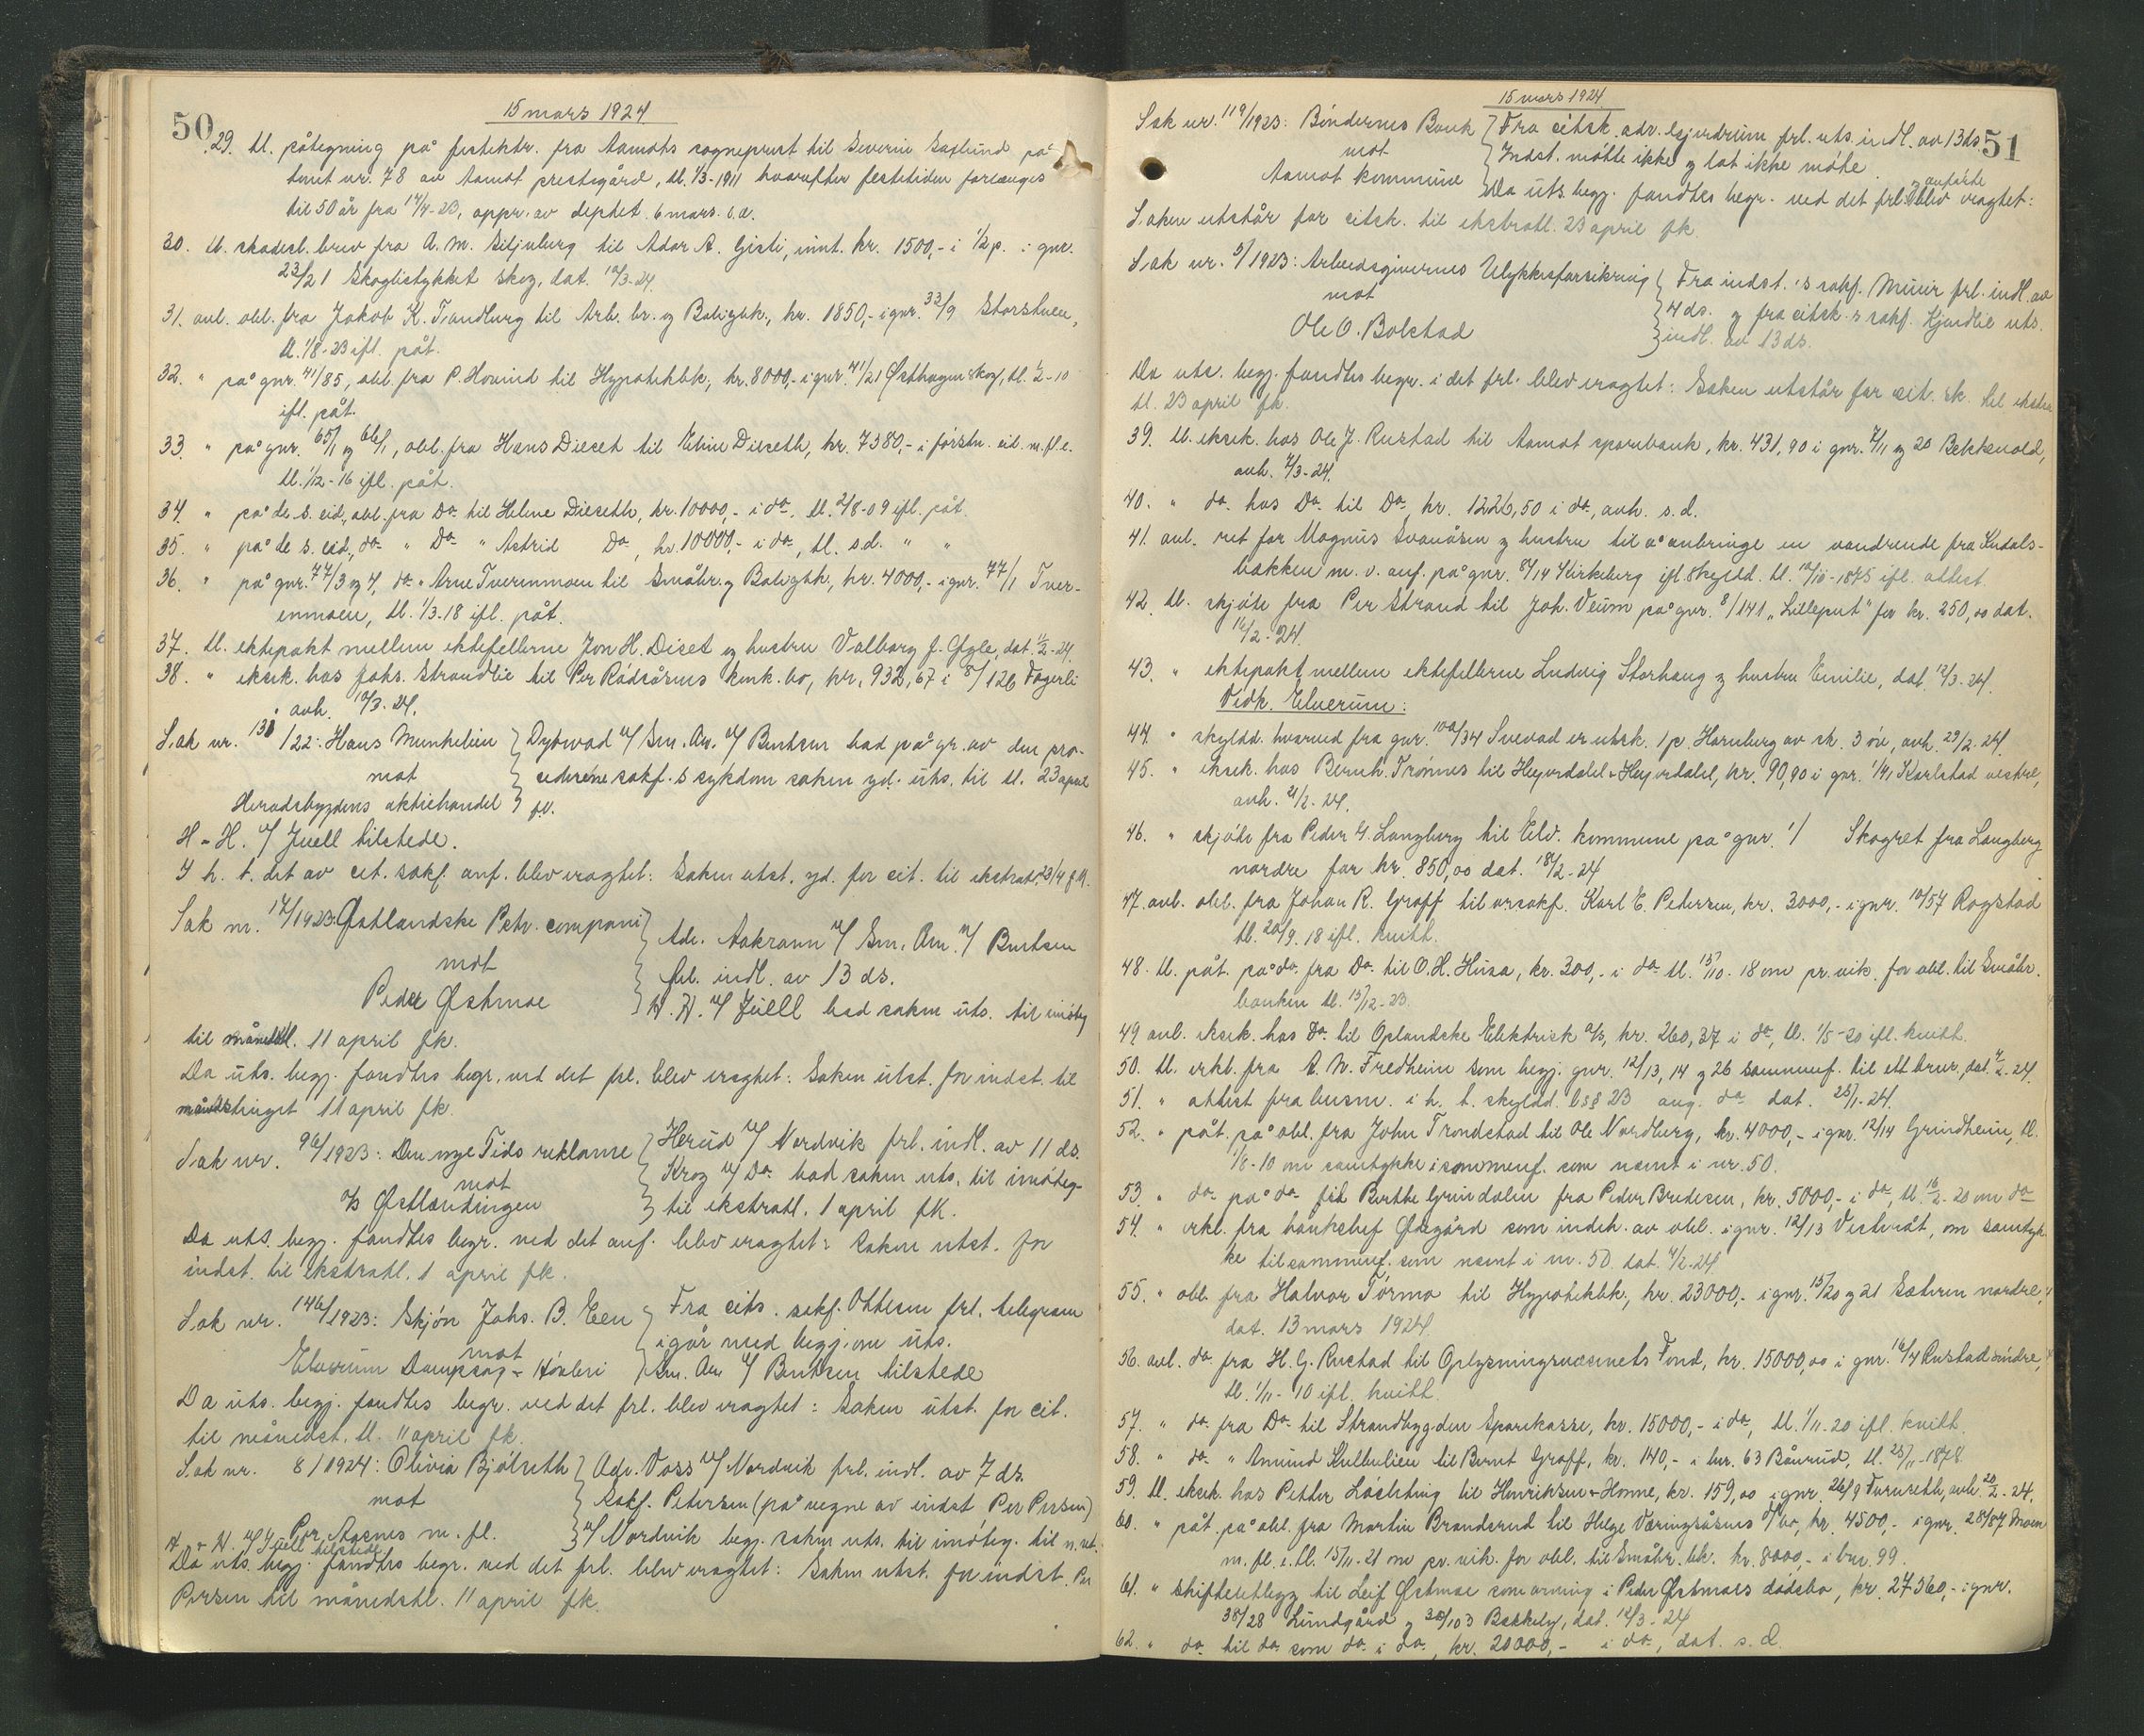 50
15 mars 1924
29. tl. påtegning på festektr. fra Aamots sogneprest til Severin Saxlund på
tomt nr. 78 av Aamot prestegård, tl. 1/3-1911 hvorefter festetiden forlænges
til 50 år fra 14/4-23, appr. av deptet. 6 mars. d.æ.
30. tl. skadesl. brev fra A. M. Siljuberg til Ador A. Gisti, innt. kr. 1500,- i 1/2 p. i gnr.
23/21 Skoglistykket skog, dat. 12/3-24.
31. avl. obl. fra Jakob K. Sandberg til Arb. br. og Boligbk., kr. 1850,- i gnr. 33/9 Storstuen,
tl. 1/8-23 ifl. påt.
32. " på gnr. 41/85, obl. fra P. Hovind til Hypotekbk., kr. 8000,- i gnr. 41/21 Østhagen skog, tl. 1/2-10
ifl. påt.
33. " på gnr. 65/1 og 66/1, obl. fra Hans Diseth til Eline Diseth, kr. 7380,- i førstn. eid. m. fl. e.
tl. 1/12-16 ifl. påt.
34. " på de s. eid., obl. fra Do. til Helene Diseth, kr. 10000,- i do., tl. 2/8-09 ifl. påt.
35. " på de s. eid., do. " Do. " Astrid Do., kr. 10000,- i do., tl. s.d. " "
36. " på gnr. 77/3 og 4, do. " Arne Tverenmoen til Småbr. og Boligbk., kr. 4000,- i gnr. 77/1 Tver-
enmoen, tl. 1/3-18 ifl. påt.
37. tl. ektepakt mellem ektefellerne Jon H. Diset og hustru Valborg f. Gyle, dat. 1/2-24.
38. " eksek. hos Johs. Strandlie til Per Rådsåsens konk. bo, kr. 932,67 i 8/126 Fagerli
avh. 12/3-24.
Sak nr. 131/22: Hans Munkelien
mot
Heradsbygdens aktiehandel
Dybwad v/ Sm. Aa. v/ Berntsen bad på gr. av den pro-
cederéne sakf. s sykdom saken yd. uts. til tl. 23 april
fk.
H - H. v/ Juell tilstede.
I h. t. det av cit. sakf. anf. blev eragtet: Saken utst. yd. for cit. til ekstratl. 23/4 fk.
Sak nr. 14/1923: Østlandske Petr. compani
mot
Peder Østmoe
Adv. Aakrann v/ Sm. Aa. v/ Berntsen
frl. indl. av 13 ds.
H. H. v/ Juell bad saken uts. til imøteg
til månedstl. 11 april fk.
Da uts. begj. fandtes begr. ved det frl. blev eragtet: Saken utst. for indst. til
månedstinget 11 april fk.
Sak nr. 96/1923: Den nye Tids reklame
mot
A/s Østlendingen
Herud v/ Nordvik frl. indl. av 11 ds.
Krog v/ Do. bad saken uts. til imøteg-
til ekstratl. 1 april fk.
Da uts. begj. fandtes begr. ved det anf. blev eragtet: Saken utst. for
indst. til ekstratl. 1 april fk.
Sak nr. 146/1923: Skjøn Johs. B. Een
mot
Elverum Dampsag - Høvleri
Fra cits. sakf. Ottesen frl. telegram
igår med begj. om uts.
Sm. Aa. v/ Berntsen tilstede
Da uts. begj. fandtes begr. ved det frl. blev eragtet: Saken utst. for cit.
til månedst. tl. 11 april fk.
Sak nr. 8/1924: Olivia Bjølseth
mot
Per Aasnes m. fl.
Adv. Voss v/ Nordvik frl. indl. av 7 ds.
Sakf. Petersen (på vegne av indst Per Persen)
v/ Nordvik begj. saken uts. til imøteg. til
H - H. v/ Juell tilstede
Da uts. begj. fandtes begr. ved det frl. blev eragtet: Saken utst. for indst. Per
Persen til månedstl. 11 april fk.
51
15 mars 1924.
Sak nr. 119/1923: Bøndernes Bank
mot
Aamot kommune
Fra citsk. adv. Gjerdrum frl. uts. indl. av 13 ds
Indst. møtte ikke og lot ikke møte.
Da uts. begj. fandtes begr. ved det frl. og anførte blev eragtet:
Saken utstår for citsk. til ekstratl. 23 april fk.
Sak nr. 5/1923: Arbeidsgivernes Ulykkesforsikring
mot
Ole O. Bolstad
Fra indst.'s sakf. Minir frl. indl. av
4 ds. og fra citsk.s sakf. Kjendlie uts.
indl. av 13 ds.
Da uts. begj. fandtes begr. i det frl. blev eragtet: Saken utstår for cit. sk. til ekstra
tl. 23 april fk.
39. tl. eksek. hos Ole J. Rustad til Aamot sparebank, kr. 431,90 i gnr. 7/11 og 20 Bekkevold,
avh. 7/3-24.
40. " do. hos Do. til Do., kr. 1226,50 i do., avh. s.d.
41. avl. ret for Magnus Svenåsen og hustru til å anbringe en vandrende fra Kndals-
bakken m. v. anf. på gnr. 8/14 Kirkeberg ifl. skyldd. tl. 12/10-1875 ifl. attest.
42. tl. skjøte fra Per Strand til Joh. Veum på gnr. 8/141 "Lilleput" for kr. 250,00 dat.
16/2-24.
43. " ektepakt mellem ektefellerne Ludvig Storhaug og hustru Emilie, dat. 12/3-24.
Vedk. Elverum:
44. " skyldd. hvorved fra gnr. 100/34 Svevad er utsk. 1 p. Hornberg av sk. 3 øre, avh. 29/2-24.
45. " eksek. hos Bernh. Trønnes til Hejerdahl - Hejerdahl, kr. 90,90 i gnr. 1/41 Karlstad vestre,
avh. 21/2-24.
46. " skjøte fra Peder G. Langberg til Elv. kommune på gnr. 1/ Skogret fra Langberg
nordre for kr. 850,00 dat. 18/2-24
47. avl. obl. fra Johan R. Graff til orsakf. Karl E. Petersen, kr. 3000,- i gnr. 10/57 Rogstad
tl. 20/9.18 ifl. kvitt.
48. tl. påt. på do. fra Do. til O. H. Husa, kr. 300,- i do. tl. 15/10-18 om pr. vik. for obl. til Småbr.
banken tl. 15/12-23.
49 avl. eksek. hos do. til Oplandske Elektrisk A/s, kr. 260,37 i do., tl. 1/5-20 ifl. kvitt.
50. tl. erkl. fra A. N. Fredheim som begj. gnr. 12/13, 14 og 26 sammenf. til ett brnr., dat. 4/2-24.
51. " attest fra lensm. i h. t. skyldd. l. § 23 ang. do. dat. 25/1-24.
52. " påt. på obl. fra John Trondstad til Ole Nordberg, kr. 4000,- i gnr. 12/14 Grindheim, tl.
1/8-10 om samtykke i sammenf. som nevnt i nr. 50.
53. " do. på do. til Berthe Grindalen fra Peder Bredesen, kr. 5000,- i do., tl. 16/2-20 om do.
54. " erkl. fra banksjef Øksgård som indeh. av obl. i gnr. 12/13 Vestvidt, om samtyk-
ke til sammenf. som nevnt i nr. 50. dat. 4/2-24
55. " obl. fra Halvor Tørmo til Hypotekbk., kr. 23000,- i gnr. 15/20 og 21 Sæteren nordre,
dat. 13 mars 1924.
56. avl. do. fra H. G. Rustad til Oplysningsvæsenets Fond, kr. 15000,00 i gnr. 16/4 Rustad søndre,
tl. 1/11-10 ifl. kvitt.
57. " do. fra Do. til Strandbygden Sparekasse, kr. 15000,- i do., tl. 1/11-20 ifl. kvitt.
58. " do. " Amund Kulbulien til Bernt Graff, kr. 140,- i lnr. 63 Bånrud, tl. 25/11-1878.
59. tl. eksek. hos Petter Løsletting til Henriksen - Honne, kr. 159,00 i gnr. 26/9 Furuseth, avh. 20/2-24.
60. " påt. på obl. fra Martin Brandsrud til Helge Væringsåsens d/bo, kr. 4500,- i gnr. 28/87 Moen
m. fl. e. tl. 15/11-21 om pr. vik. for obl. til Småbr. bk. kr. 8000,- i bnr. 99.
61. " skifteutlegg til Leif Østmoe som arving i Peder Østmoes dødsbo, kr. 27560,- i gnr.
38/28 Lundgård og 38/103 Bekkely, dat. 12/3-24
62. " do. til do. som do. i do., kr. 20000,- i do., dat. s. d.